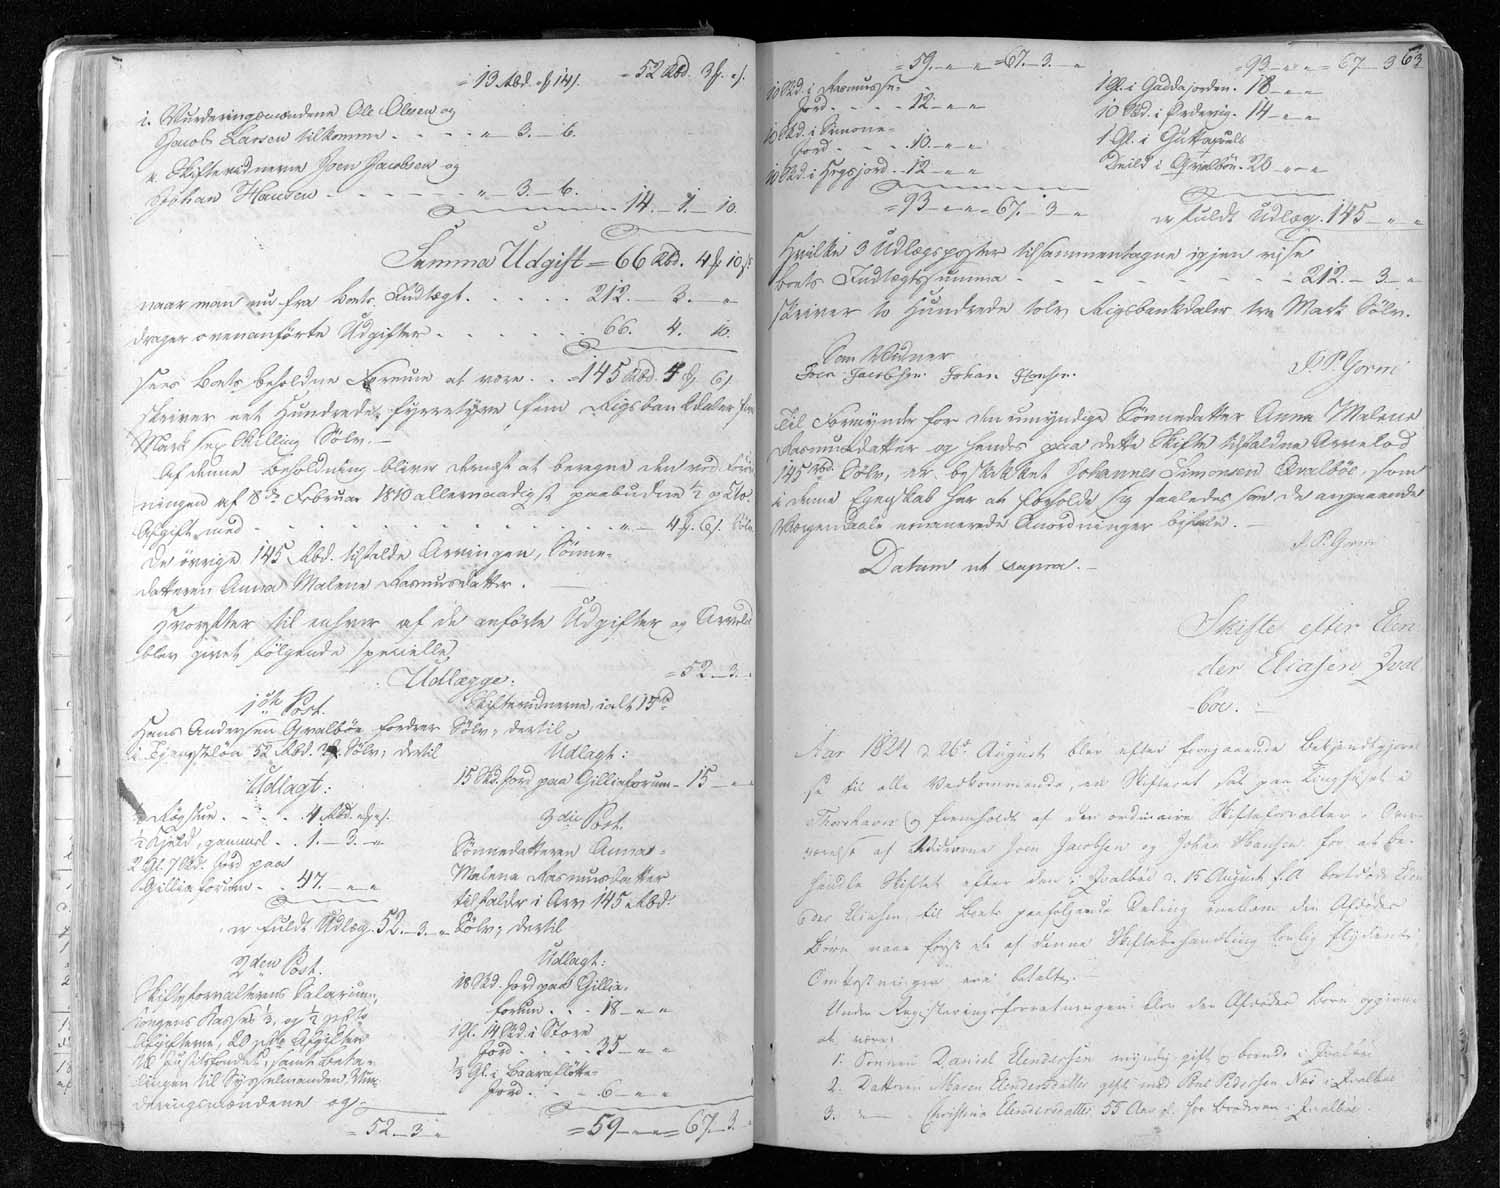 = 13 Rbd. 4 ß 14 s. = 52 Rbd. 3 ß. s.
i. Vurderingsmændene Ole Olsen og
Jacob Larsen tilkomme - - - - " 3. - 6.
k. Skiftevidnerne Joen Jacobsen og
Johan Hansen - - - - - " 3. - 6.
14. - 1. - 10.
Summa Udgift = 66 Rbd. 4 ß 10 s.
naar man nu fra Boets Indtægt . . . . . 212. - 3. - "
drager ovenanførte Udgifter - . . . . . 66. 4. 10.
sees Boets beholdne Formue at være . . = 145 Rbd. 4 ß 6 s.
skriver eet Hundrede fyrretyve fem Rigsbankdaler fire
Mark sex Skilling Sølv. -
Af denne Beholdning bliver dernæst at beregne den ved Forord-
ningen af 8de Februar 1810 allernaadigst paabudne ½ pCto.
Afgift med - - - - - - " - 4 ß. 6 s. Sølv
De øvrige 145 Rbd. tilfalde Arvingen, Sønne-
datteren Anna Malene Rasmusdatter. -
Hvorefter til enhver af de anførte Udgifter og Arvelod
blev givet følgende specielle
Udlægge:
1ste Post.
Hans Andersen Qvalbøe fordrer
i Tjenesteløn 52 Rbd. 3 ß. Sølv; dertil
Udlagt:
. . . . 4 Rbd.
½ Kjeld, gammel . . 1. - 3. - "
2 Gl. 7 Skd. Jord paa
Gilliaforum - . . 47. - " - "
er fuldt Udlæg. 52. - 3. - "
2den Post.
Skifteforvalterens Salarium,
Kongens Kasses ⅓, og ½ pCto
Afgifterne, 20 pCto Afgiften
til Justitsfondet, samt Beta-
lingen til Sysselmanden, Vur-
deringsmændene og
= 52. - 3. - "
= 52. - 3. -
Skiftevidnerne, ialt 15
Sølv, dertil
Udlagt:
15 Skd. Jord paa Gilliaforum - 15 - "
3die Post.
Sønnedatteren Anna
Malena Rasmusdatter
tilfalder i Arv 145 Rbd.
Sølv; dertil
Udlagt:
18 Skd. Jord paa Gillia-
forum . . . 18 - " - "
1 Gl. 14 Skd. i Store
Jord . . . . 35 - " - "
Gl. i
Jord . . . . 6 - " - "
= 59 - " - " = 67. - 3. -
= 59. - " - " = 67. - 3. - "
10 Skd. i Rasmusse-
Jord . - . . . 12. - " - "
10 Skd. i Simone-
Jord . . . . . 10. - " - "
10 Skd. i Hegsjord . . 12 - " - "
= 93 - " - " = 67. - 3 - "
= 93 - " - " = 67 - 3 63
1 Gl. i Gaddajorden. 18 - " - "
10 Skd. i . 14 - " - "
1 Gl. i
Deild i Qvalbøe. 20 - " - "
er fuldt Udlæg. 145 - " - "
Hvilke 3 Udlægsposter tilsammentagne igjen vise
Boets Indtægtssumma - - - - - - 212. - 3. - "
skriver to Hundrede tolv Rigsbankdaler tre Mark Sølv.
Som Vidner
Joen Jacobsen. Johan Hansen.
Til Formynder for den umyndige Sønnedatter Anna Malene
Rasmusdatter og hendes paa dette Skifte tilfaldne Arvelod
145 Rbd. Sølv, er beskikket Johannes Simonsen Qvalbøe, som
i denne Egenskab har at forholde sig saaledes som de angaaende
emanerede Anordninger befale. -
Datum ut supra. -
Skifte efter Elen
der Eliasen Qval
bøe. -
Aar 1824 d 26de August blev efter foregaaende Bekjendtgjørel
se til alle Vedkommende, en Skifteret sat paa Tinghuset i
Thorshavn og fremholdt af den ordinaire Skifteforvalter i Over-
værelse af Vidnerne Joen Jacobsen og Johan Hansen for at be-
handle Skiftet efter den i Qvalbøe d. 15 August f. A. bortdøde Elen
der Eliasen, til Boets paafølgende Deling mellem den Afdødes
Børn naar først de af denne Skiftebehandling lovlig flydende
Omkostninger ere betalte. -
Under Registeringsforretningen blev den Afdødes Børn opgivne
at være:
1. Sønnen Daniel Elendersen myndig gift og boende i Qvalbøe
2. Datteren Maren Elendersdatter gift med Poul Pedersen Næs i Qvalbøe
3. - " - Christina Elendersdatter 55 Aar gl. hos Broderen i Qvalbøe.